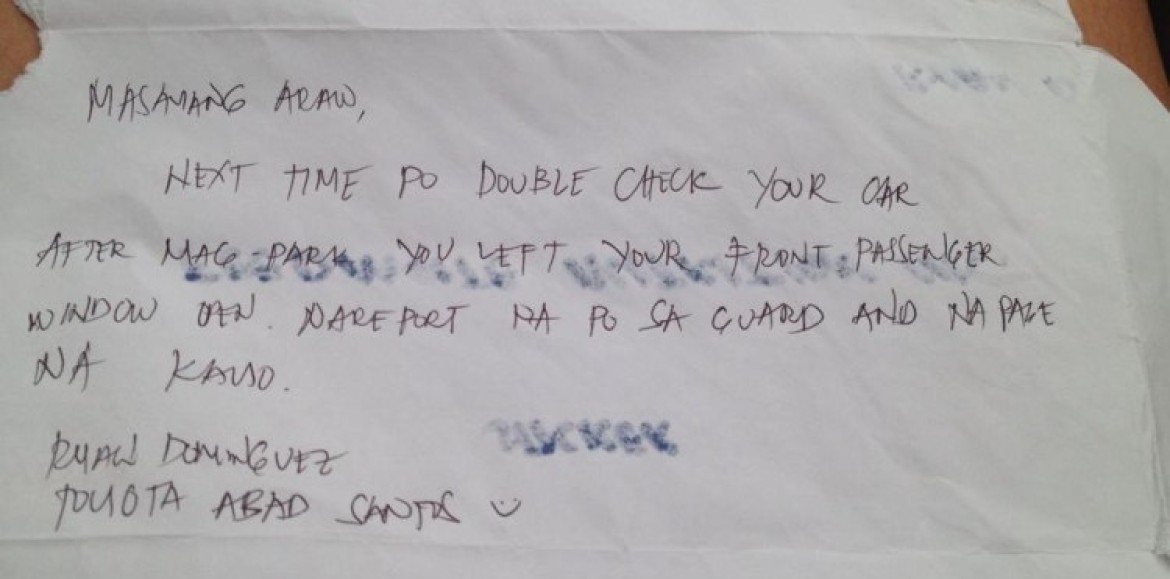 MASAYANG ARAW,
NEXT TIME PO DOUBLE CHECK YOUR CAR
AFTER MAG-PARK YOU LEFT YOUR FRONT PASSENGER
WINDOW OPEN. NAREPORT NA PO SA GUARD AND NA PAGE
NA KAYO.
RYAN DOMINGUEZ
TOYOTA ABAD SANTOS